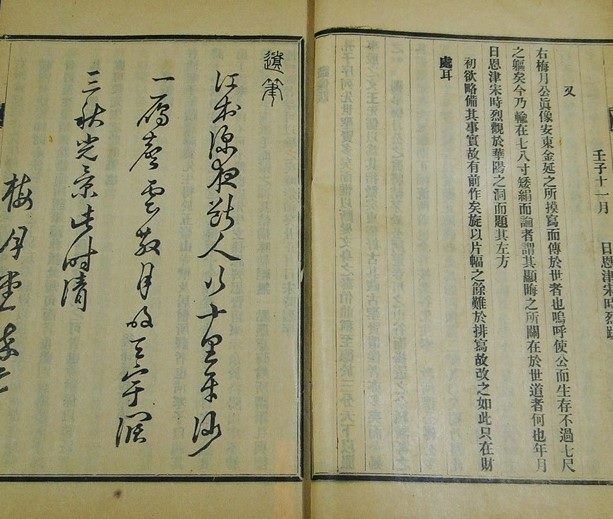 壬子十一月　日恩津宋時烈跋
又
右梅月公眞像安東金延之所摸寫而傳於世者也嗚呼使公而生存不過七尺
之軀矣今乃輸在七八寸矮絹而論者謂其顯晦之所關在於世道者何也年月
日恩津宋時烈觀於華陽之洞而題其左方
初欲略備其事實故有前作矣旋以片幅之餘難於排寫故改之如此只在財
處耳
遺筆
江村深夜斷人行十里平沙
一鴈聲雲散月明天宇濶
三秋光景此時清
梅月堂